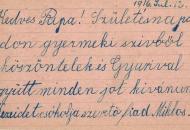 1916 Jul. 12.
Kedves Papa! Születésnapo
don gyermeki szivből
köszöntelek is Gyurival
együtt minden jót kivánun
kezeidet csókolja szerető fiad Miklós